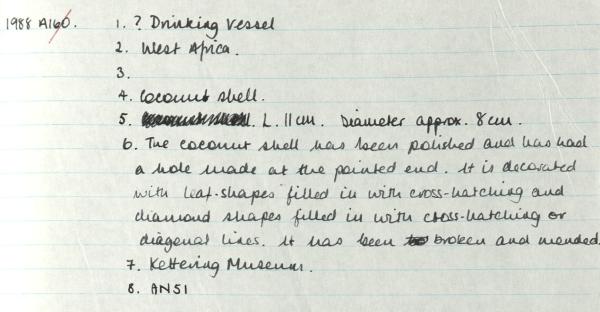 1988 A160. 1. ? Drinking Vessel
2. West Africa.
3.
4. Coconut shell.
5. L. 11cm. Diameter approx. 8cm.
6. The coconut shell has been polished and has had
a hole made at the pointed end. It is decorated
with leaf-shapes filled in with cross-hatching and
diamond shapes filled in with cross-hatching or
diagonal lines. It has been broken and mended.
7. Kettering Museum.
8. AN51